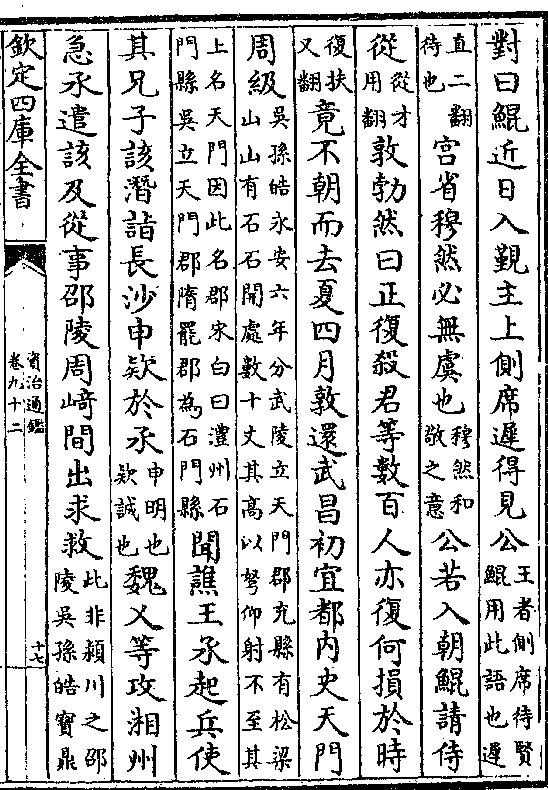 對曰鯤近日入覲主上側席遲得見公王者側席待賢鯤用此語也遲
直二翻待也宫省穆然必無虞也穆然和敬之意公若入朝鯤請侍
從從才用翻敦勃然曰正復殺君等數百人亦復何損於時
復扶又翻竟不朝而去夏四月敦還武昌初宜都内史天門
周級吳孫皓永安六年分武陵立天門郡充縣有松梁山山有石石開處數十丈其高以弩仰射不至其
上名天門因此名郡宋白曰澧州石門縣吳立天門郡隋罷郡為石門縣聞譙王承起兵使
其兄子該潛詣長沙申欵於承申明也欵誠也魏乂等攻湘州
急承遣該及從事邵陵周﨑間出求救此非潁川之邵陵吳孫皓寶鼎
欽定四庫全書
資治通鑑
卷九十二
十七